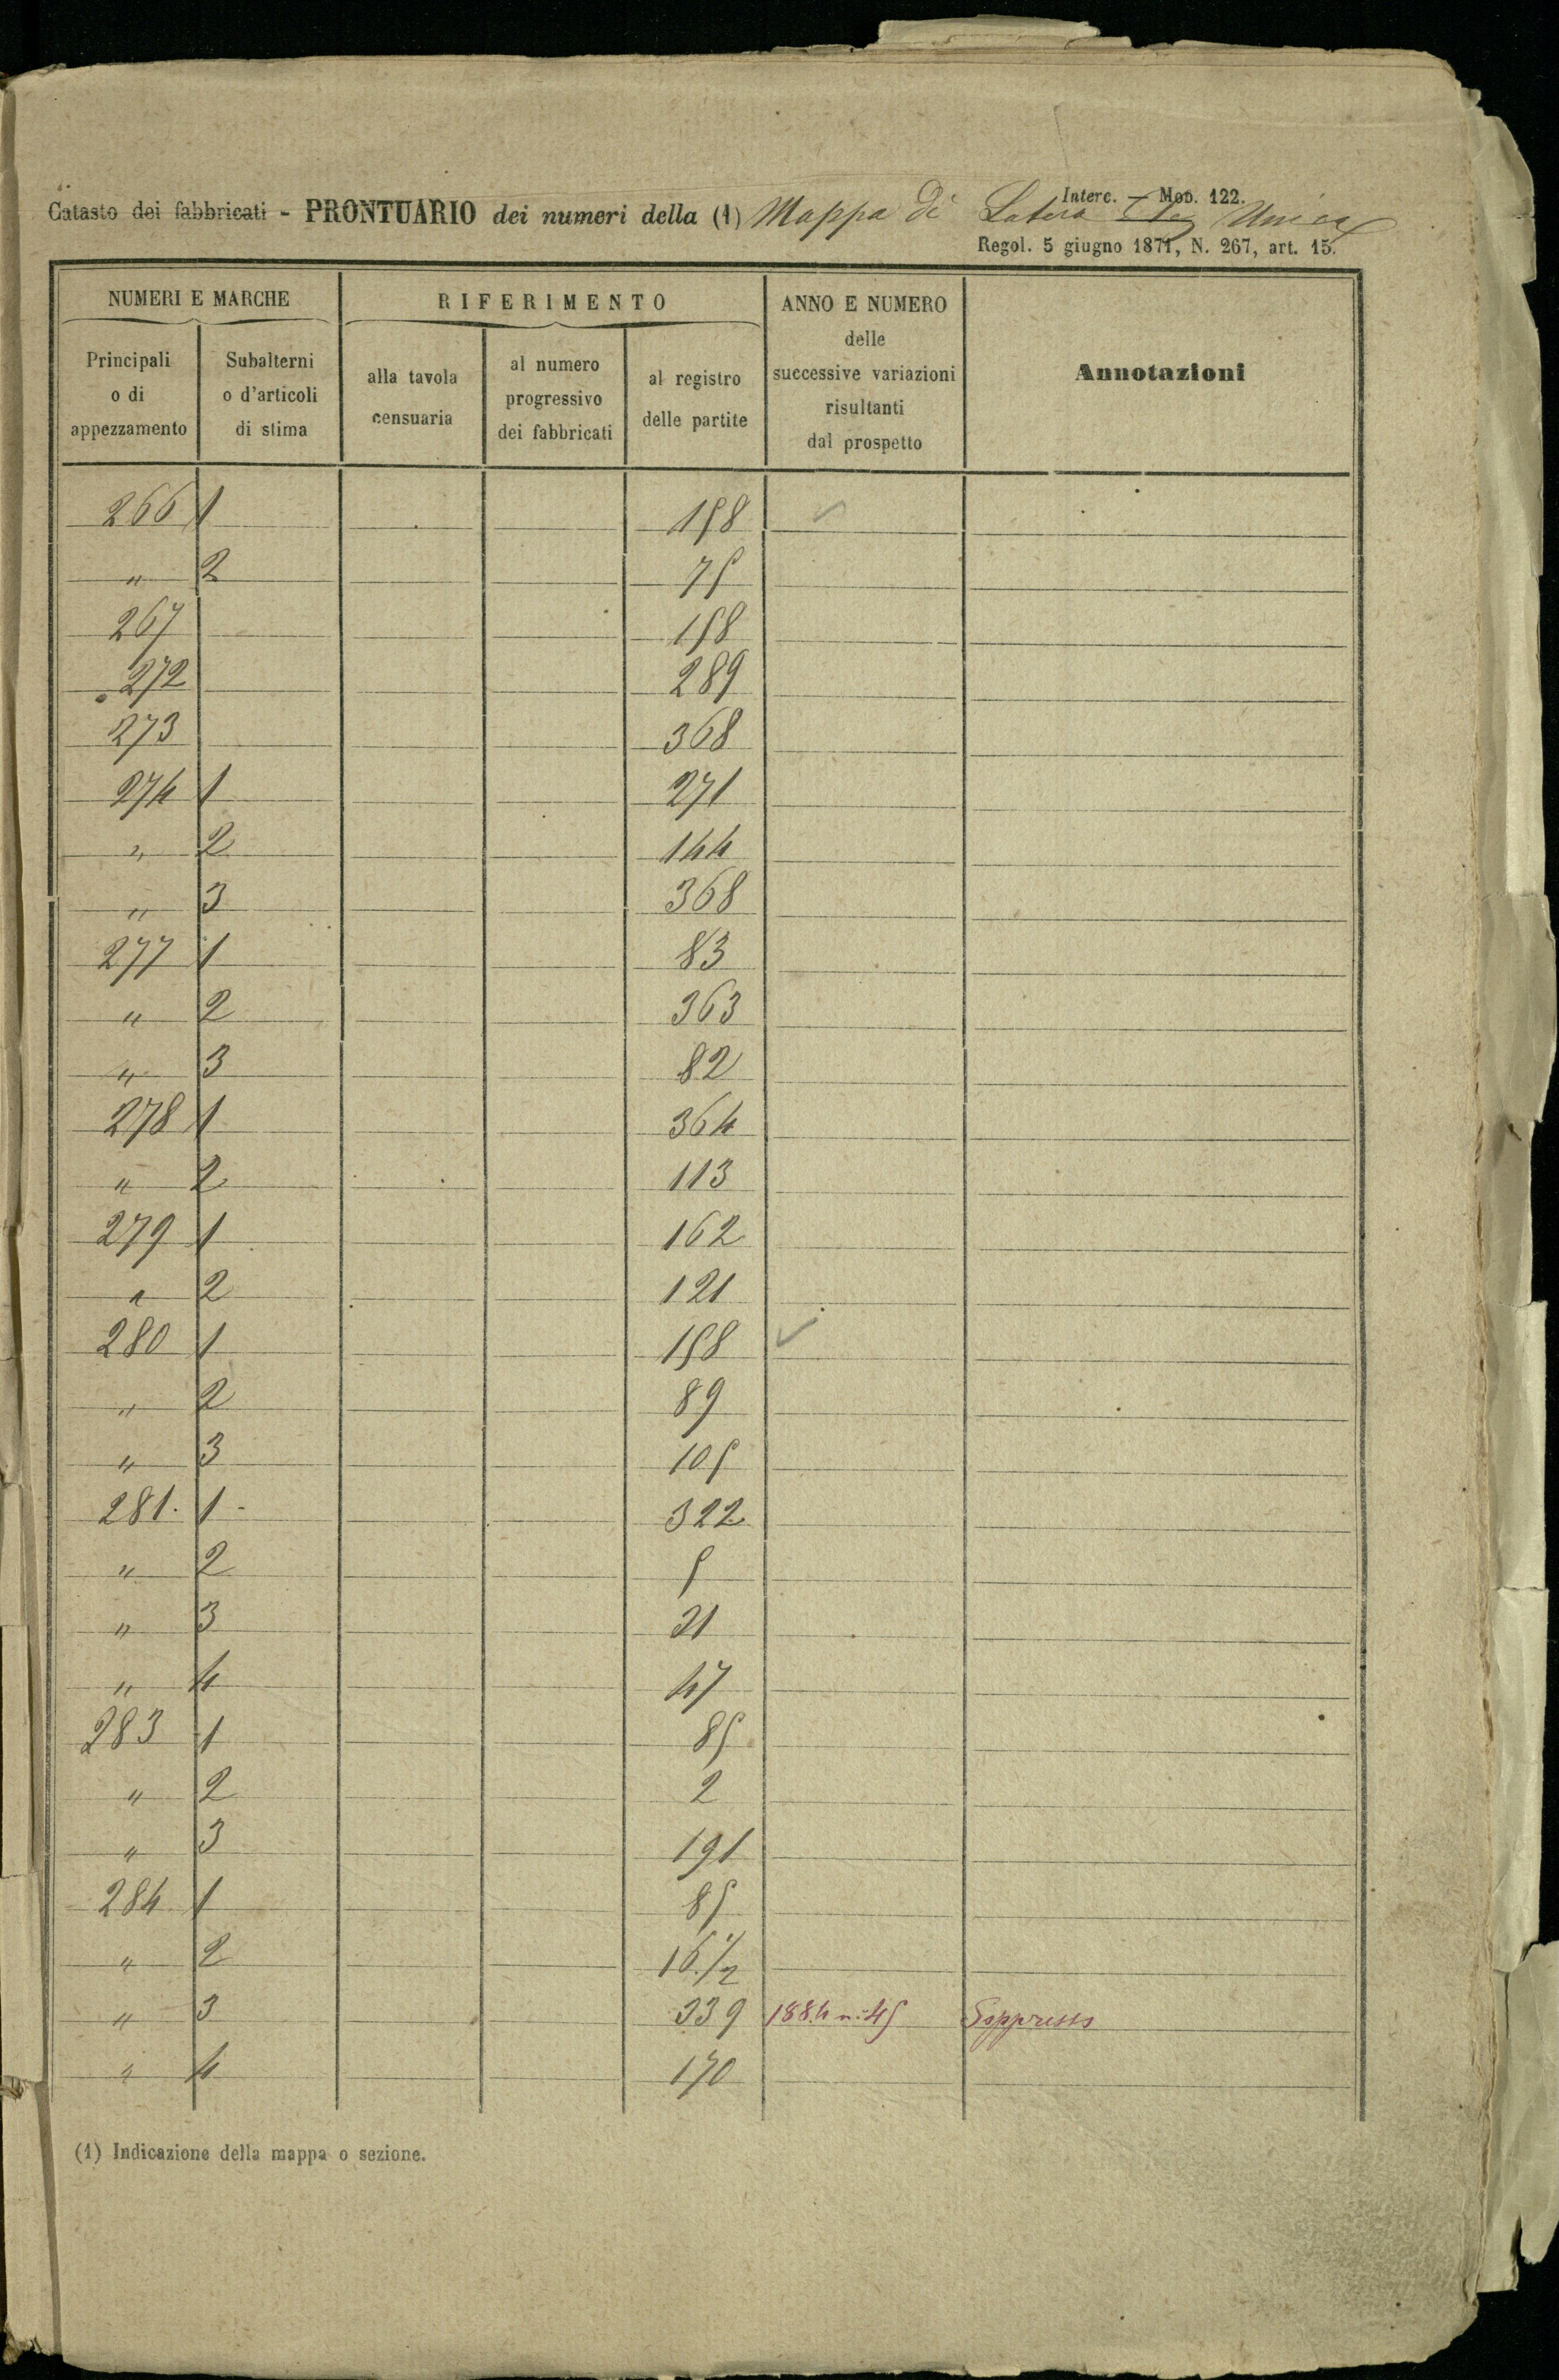 Interc. — Mod. 122.
Catasto dei fabbricati - PRONTUARIO dei numeri della (1) Mappa di Latera Unica
Regol. 5 giugno 1871, N. 267, art. 15.
NUMERI E MARCHE
RIFERIMENTO
ANNO E NUMERO
delle
successive variazioni
risultanti
dal prospetto
Annotazioni
Principali
o di
appezzamento
Subalterni
o d'articoli
di stima
alla tavola
censuaria
al numero
progressivo
dei fabbricati
al registro
delle partite
266 1 158
" 2 75
267 158
272 289
273 368
274 1 271
" 2 144
" 3 368
277 1 83
" 2 363
" 3 82
278 1 364
" 2 113
279 1 162
" 2 121
280 1 158
" 2 89
" 3 105
281. 1 - 322
" 2 5
" 3 21
" 4 47
283 1 85
" 2 2
" 3 191
284 1 85
" 2 16.1/2
" 3 339 1884 n: 45 Soppresso
" 4 170
(1) Indicazione della mappa o sezione.